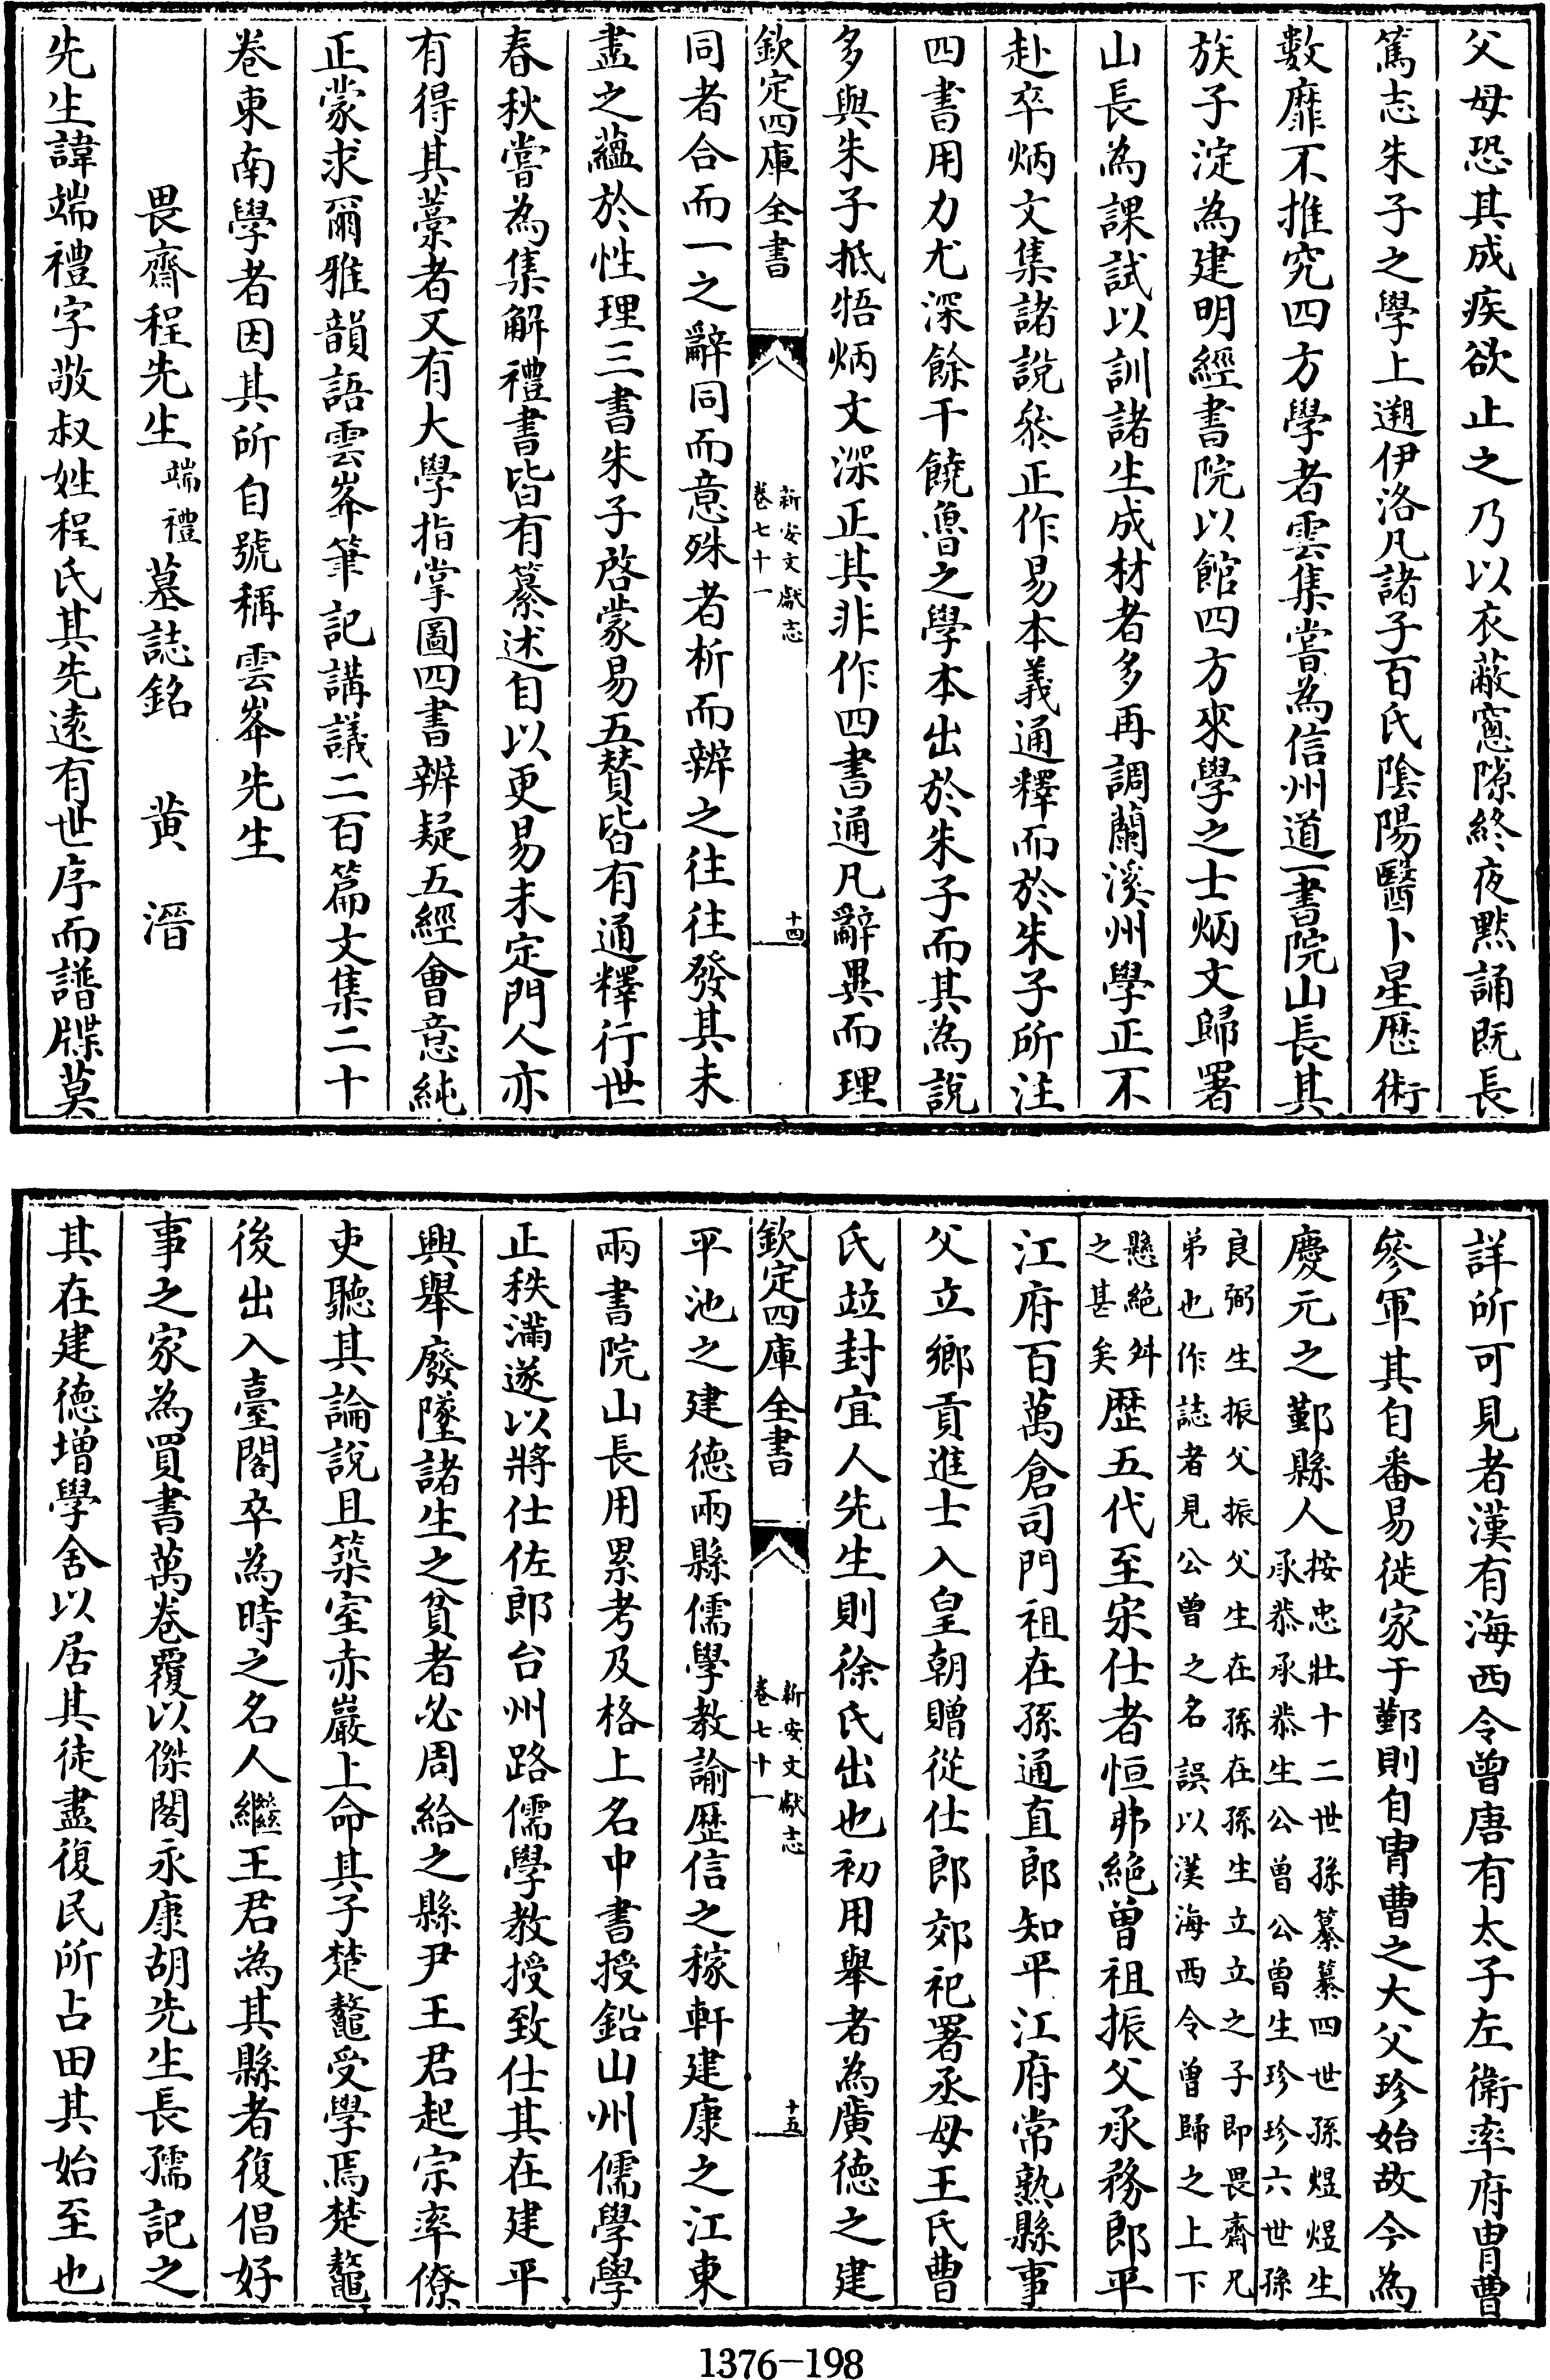 父母恐其成疾欲止之乃以衣蔽窻隙終夜黙誦既長
篤志朱子之學上遡伊洛凡諸子百氏陰陽醫卜星厯術
數靡不推究四方學者雲集嘗為信州道一書院山長其
族子淀為建明經書院以館四方來學之士炳文歸署
山長為課試以訓諸生成材者多再調蘭溪州學正不
赴卒炳文集諸說叅正作易本義通釋而於朱子所注
四書用力尤深餘干饒魯之學本出於朱子而其為說
多與朱子抵牾炳文深正其非作四書通凡辭異而理
欽定四庫全書
新安文獻志
卷七十一
十四
同者合而一之辭同而意殊者析而辨之往往發其未
盡之蘊於性理三書朱子啓蒙易五贊皆有通釋行世
春秋嘗為集解禮書皆有纂述自以更易未定門人亦
有得其藁者又有大學指掌圖四書辨疑五經會意純
正蒙求爾雅韻語雲峯筆記講議二百篇文集二十
卷東南學者因其所自號稱雲峯先生
畏齋程先生端禮墓誌銘 黄溍
先生諱端禮字敬叔姓程氏其先遠有世序而譜牒莫
詳所可見者漢有海西令曾唐有太子左衛率府胄曹
參軍其自番易徙家于鄞則自胄曹之大父珍始故今為
慶元之鄞縣人按忠壯十二世孫纂纂四世孫煜煜生
承恭承恭生公曾公曾生珍珍六世孫
良弼生振父振父生在孫在孫生立立之子即畏齋兄
弟也作誌者見公曾之名誤以漢海西令曾歸之上下
懸絶舛
之甚矣歴五代至宋仕者恒弗絶曽祖振父承務郎平
江府百萬倉司門祖在孫通直郎知平江府常熟縣事
父立鄉貢進士入皇朝贈從仕郎郊祀署丞母王氏曹
氏竝封宜人先生則徐氏出也初用舉者為廣徳之建
欽定四庫全書
新安文獻志
卷七十一
十五
平池之建徳兩縣儒學教諭歴信之稼軒建康之江東
兩書院山長用累考及格上名中書授鉛山州儒學學
正秩滿遂以將仕佐郎台州路儒學教授致仕其在建平
興舉廢墜諸生之貧者必周給之縣尹王君起宗率僚
吏聽其論說且築室赤巖上命其子楚鼇受學焉楚鼇
後出入臺閣卒為時之名人繼王君為其縣者復倡好
事之家為買書萬卷覆以傑閣永康胡先生長孺記之
其在建徳增學舍以居其徒盡復民所占田其始至也
1376-198